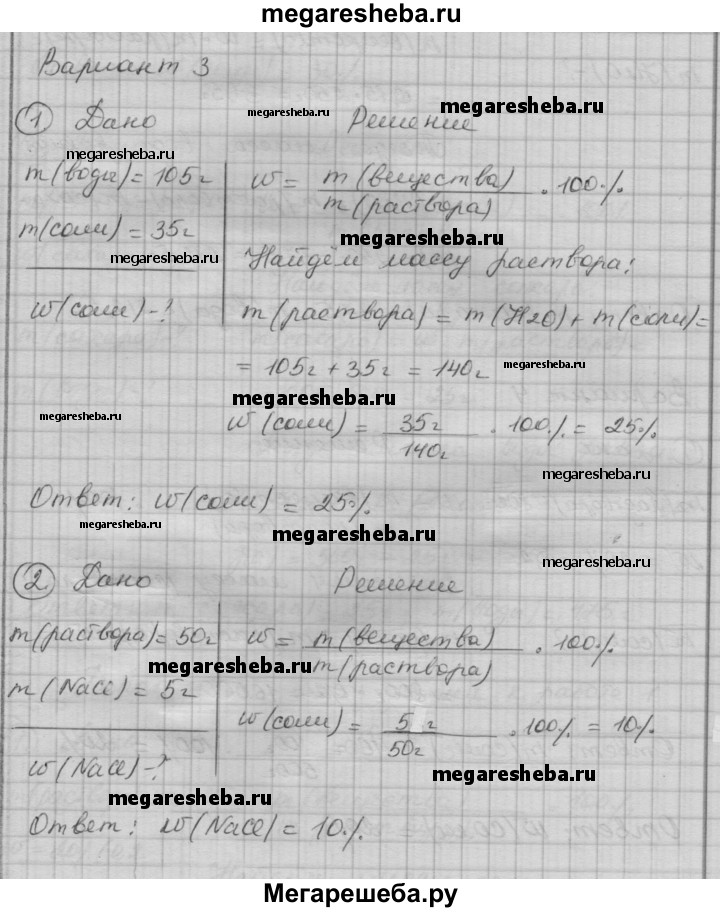 megaresheba.ru
Вариант 3
1 Дано Решение
megaresheba.ru megaresheba.ru
megaresheba.ru
m(воды) = 105г w = m(вещества) / m(раствора) · 100%
m(соли) = 35г
megaresheba.ru
megaresheba.ru
Найдём массу раствора:
w(соли) - ? m(раствора) = m(H2O) + m(соли) =
= 105г + 35г = 140г
megaresheba.ru
megaresheba.ru
megaresheba.ru
w(соли) = 35г / 140г · 100% = 25%
megaresheba.ru
Ответ: w(соли) = 25%
megaresheba.ru
megaresheba.ru
megaresheba.ru
2 Дано Решение
m(раствора) = 50г w = m(вещества) / m(раствора) · 100%
megaresheba.ru
m(NaCl) = 5г
w(соли) = 5г / 50г · 100% = 10%
w(NaCl) - ?
megaresheba.ru
megaresheba.ru
Ответ: w(NaCl) = 10%
Мегарешеба.ру